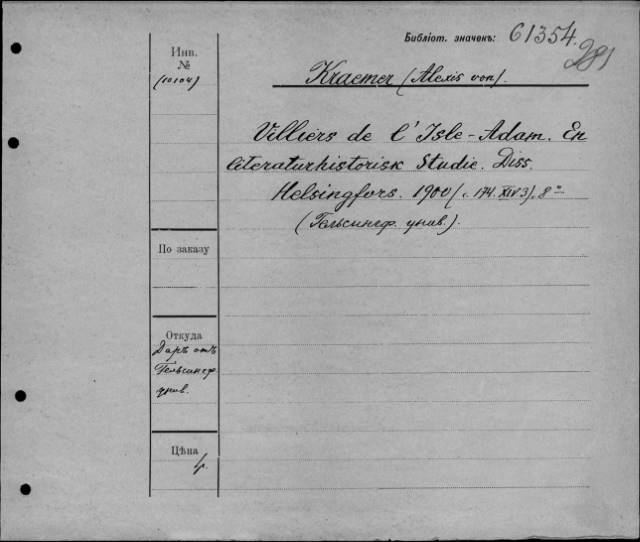 Библіот. значекъ: 61354.
281
Инв.
№
(10104)
Kraemer (Alexis von).
Villiers de l'Isle-Adam. En
literaturhistorisk Studie. Diss.
Helsingfors. 1900 174. XIV 3). 8º
(Гельсингф. унив.).
По заказу
Откуда
Даръ отъ
Гельсингф
унив.
Цѣна